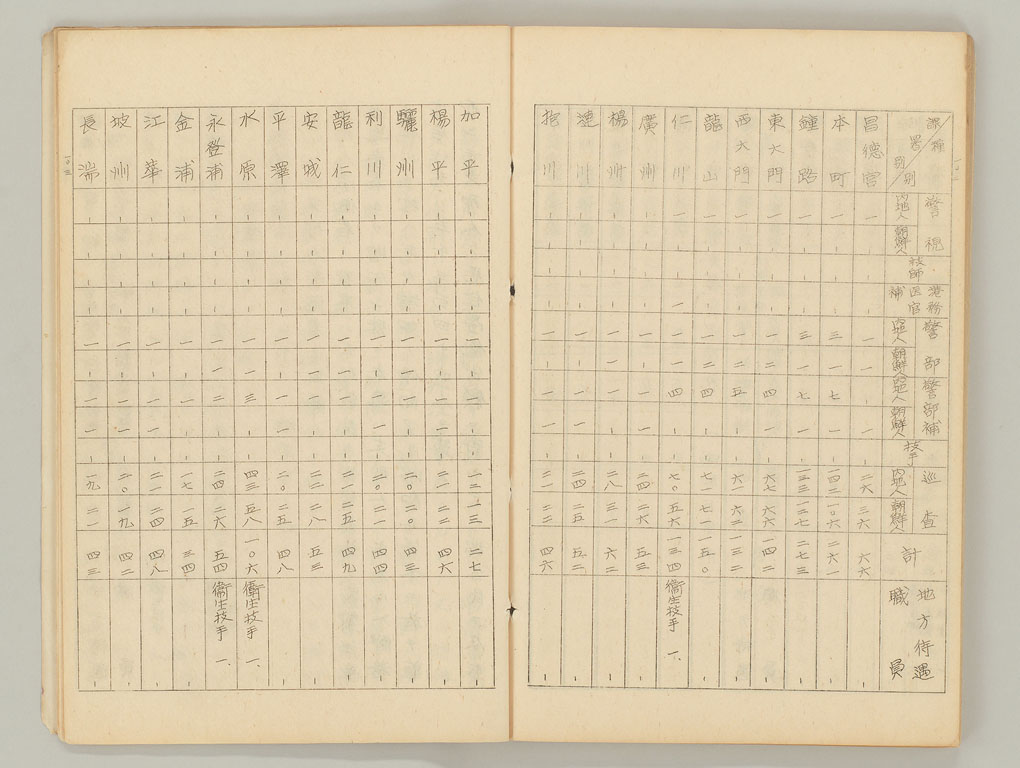 課種
署別 別
警視 内地人 朝鮮人
技師
港務医官補
警部 内地人 朝鮮人
警部補 内地人 朝鮮人
技手
巡査 内地人 朝鮮人
計
地方待遇職員
昌德宮 一 一 一 二六 三六 六六
本町 一 三 一 七 一四二 一〇六 二六一
鍾路 一 三 一 七 一 一三三 一二七 二七三
東大門 一 一 二 四 六七 六六 一四二
西大門 一 一 二 五 六一 六二 一三二
龍山 一 一 二 四 七一 七一 一五〇
仁川 一 一 一 一 四 七〇 五六 一三四 衞生技手 一、
廣州 一 一 二四 二六 五三
楊州 一 一 一 二八 三一 六二
漣川 一 一 二四 二五 五二
抱川 一 一 二一 二二 四六
加平 一 一 一二 一三 二七
楊平 一 一 一 二一 二二 四六
驪州 一 一 二〇 二〇 四三
利川 一 一 一 二〇 二一 四四
龍仁 一 一 二一 二五 四九
安城 一 一 二二 二八 五三
平澤 一 一 一 二〇 二五 四八
水原 一 一 三 四三 五八 一〇六 衞生技手 一、
永登浦 一 一 二 二四 二六 五四 衞生技手 一、
金浦 一 一 一七 一五 三四
江華 一 一 一 二一 二四 四八
坡州 一 一 一 二〇 一九 四二
長湍 一 一 一 一九 二一 四三